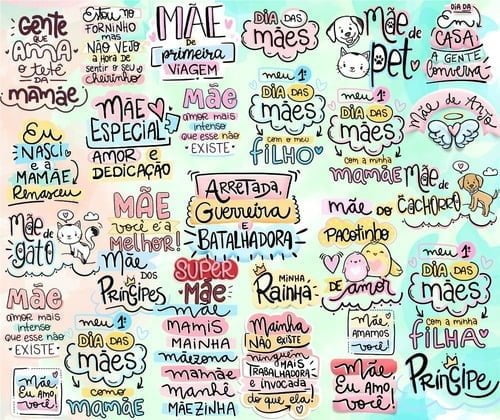 Gente
que
AMA
o tetê
DA
MAMÃE
Estou no
FORNINHO
mas
NÃO VEJO
A HORA DE
sentir o seu
cheirinho
MÃE
DE
primeira
VIAGEM
DIA DAS
mães
Mãe
de
pet
DIA DA
Em
CASA
A GENTE
Conversa
MÃE
ESPECIAL
AMOR E
DEDICAÇÃO
Mãe
amor mais
intenso
que esse não
EXISTE
meu 1º
DIA DAS
Mães
com o meu
filho
meu 1º
DIA DAS
Mães
com a minha
mamãe
Mãe de Anjo
Eu
NASCI
e a
MAMÃE
Renasceu
MÃE
você é a
Melhor!
ARRETADA,
Guerreira
E
BATALHADORA
MÃE DO
PACOTINHO
DE
amor
Mãe
de
CACHORRO
Mãe
de
gato
Mãe
DOS
PRÍNCIPES
SUPER
Mãe
MINHA
Rainha
meu 1º
DIA DAS
Mães
com a minha
FILHA
Mãe
amor mais
intenso
que esse não
EXISTE
meu 1º
DIA DAS
mães
como
MAMÃE
Mãe
MAMIS
MAINHA
mãezona
mamãe
manhê
MÃEZINHA
Mainha
NÃO EXISTE
ninguém
MAIS
TRABALHADORA
e invocada
do que ela!
MÃE
AMAMOS
você!
Mãe
EU AMO
você!
Mãe
EU AMO,
você!
Príncipe